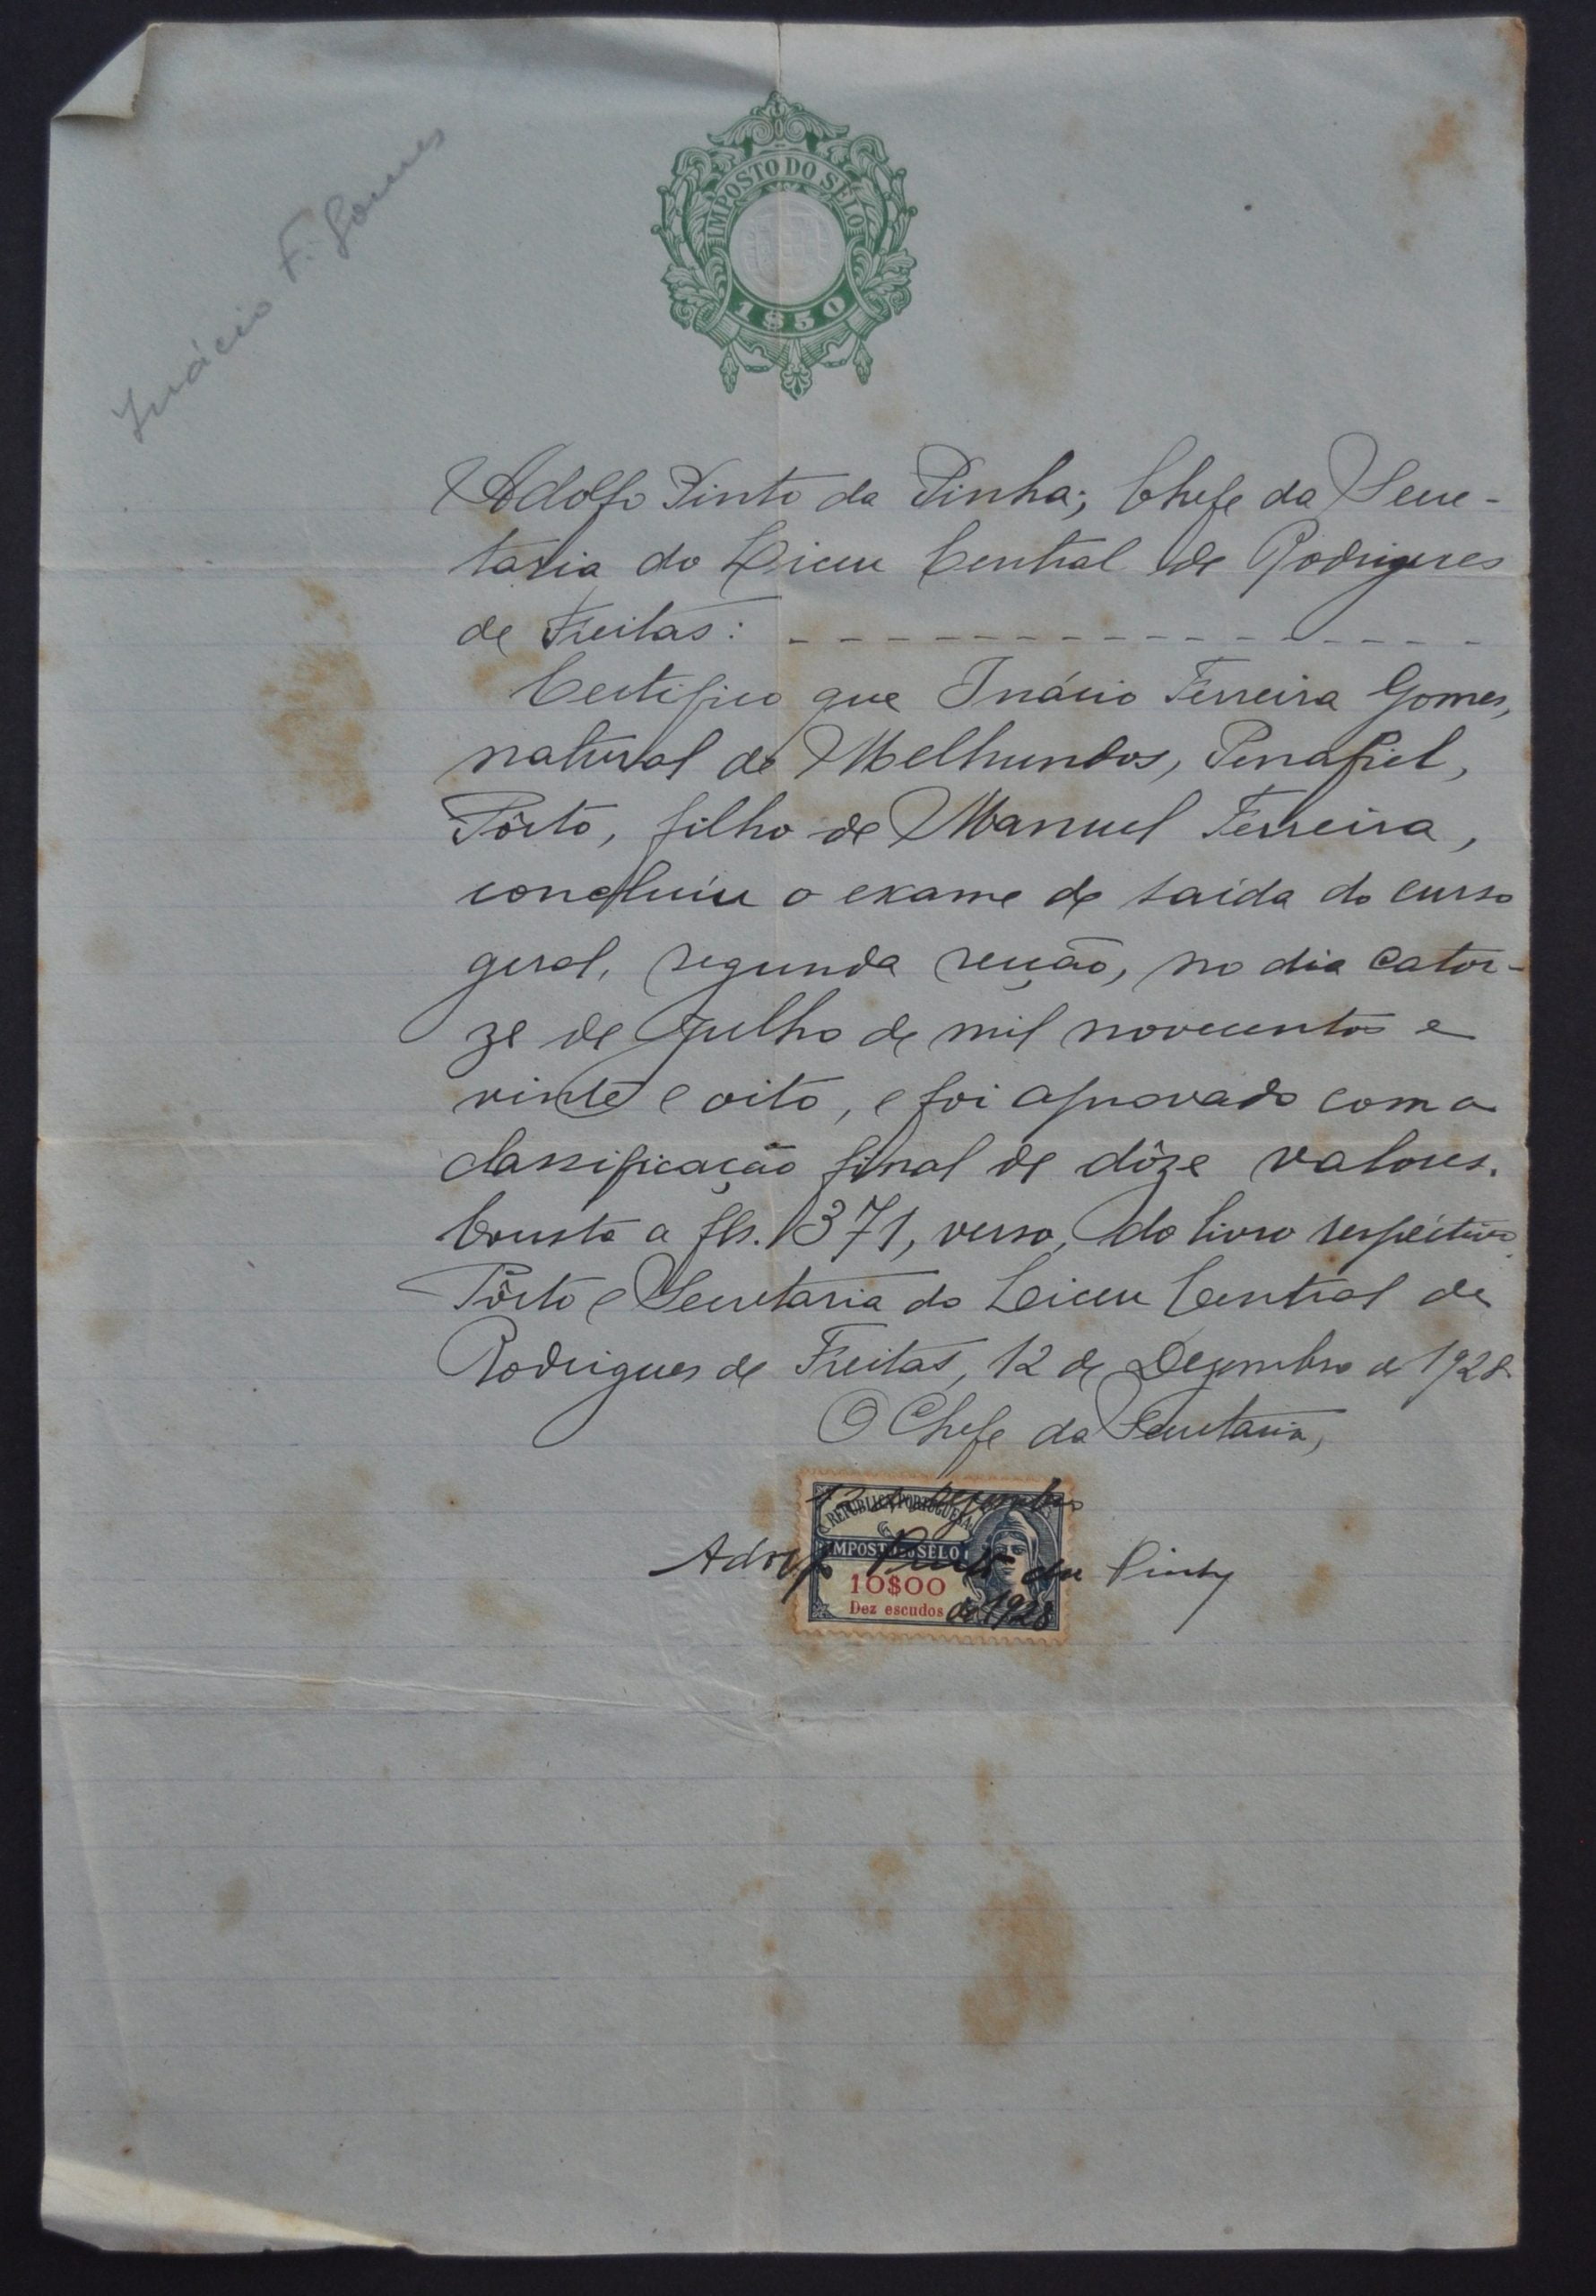 Inácio F. Gomes
IMPOSTO DO SÊLO
1$50
Adolfo Pinto da Pinha; Chefe da Secre-
taria do Liceu Central de Rodrigues
de Freitas: - - - - - - - - - - - - - - - - -
Certifico que Inácio Ferreira Gomes,
natural de Melhundos, Penafiel,
Pôrto, filho de Manuel Ferreira,
concluíu o exame de saída do curso
geral, segunda secção, no dia cator-
ze de Julho de mil novecentos e
vinte e oito, e foi aprovado com a
classificação final de dôze valores.
Consta a fls. 371, verso, do livro respéctivo.
Pôrto e Secretaria do Liceu Central de
Rodrigues de Freitas, 12 de Dezembro de 1928
O Chefe da Secretaria,
12 de Dezembro
REPUBLICA PORTUGUESA
IMPOSTO DO SELO
Adolfo Pinto da Pinha
10$00
Dez escudos
de 1928